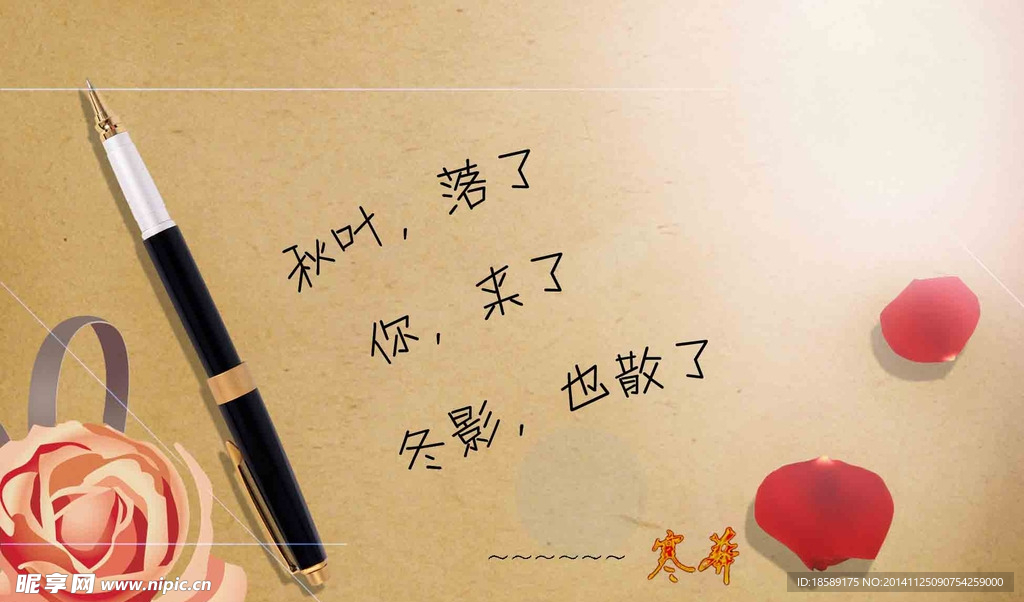 秋叶，落了
你，来了
冬影，也散了
~~~~~~ 寒莽
昵享网 www.nipic.cn
ID:18589175 NO:20141125090754259000